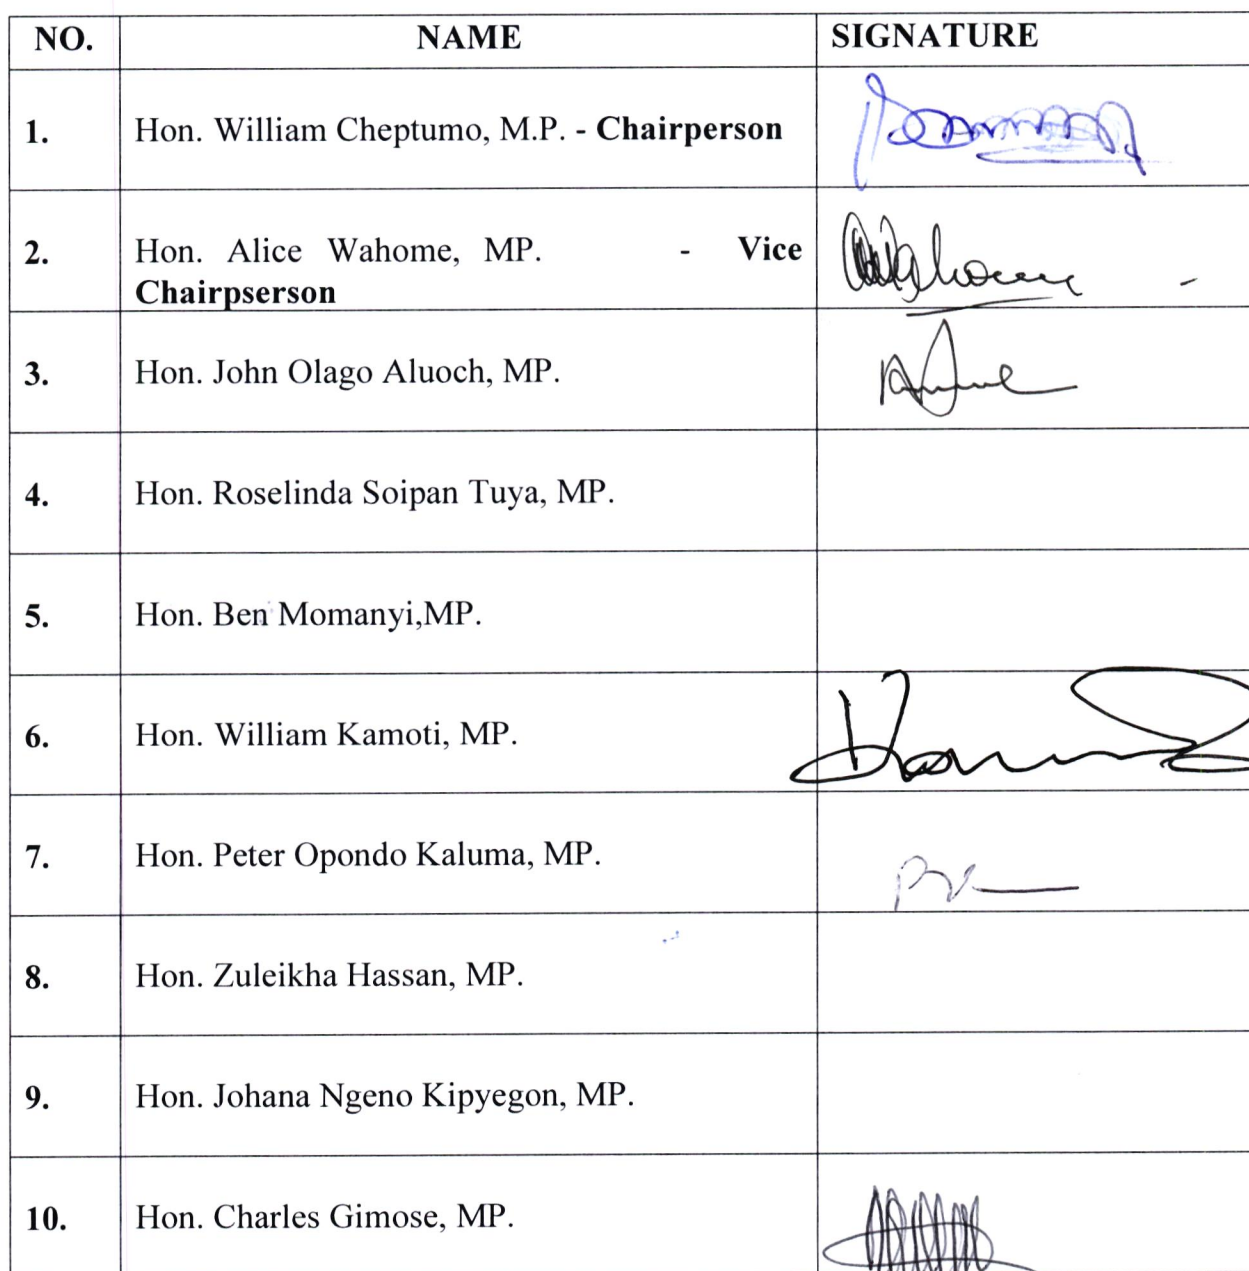 NO. NAME SIGNATURE
1. Hon. William Cheptumo, M.P. - Chairperson
2. Hon. Alice Wahome, MP. - Vice
Chairpserson
3. Hon. John Olago Aluoch, MP.
4. Hon. Roselinda Soipan Tuya, MP.
5. Hon. Ben Momanyi,MP.
6. Hon. William Kamoti, MP.
7. Hon. Peter Opondo Kaluma, MP.
8. Hon. Zuleikha Hassan, MP.
9. Hon. Johana Ngeno Kipyegon, MP.
10. Hon. Charles Gimose, MP.